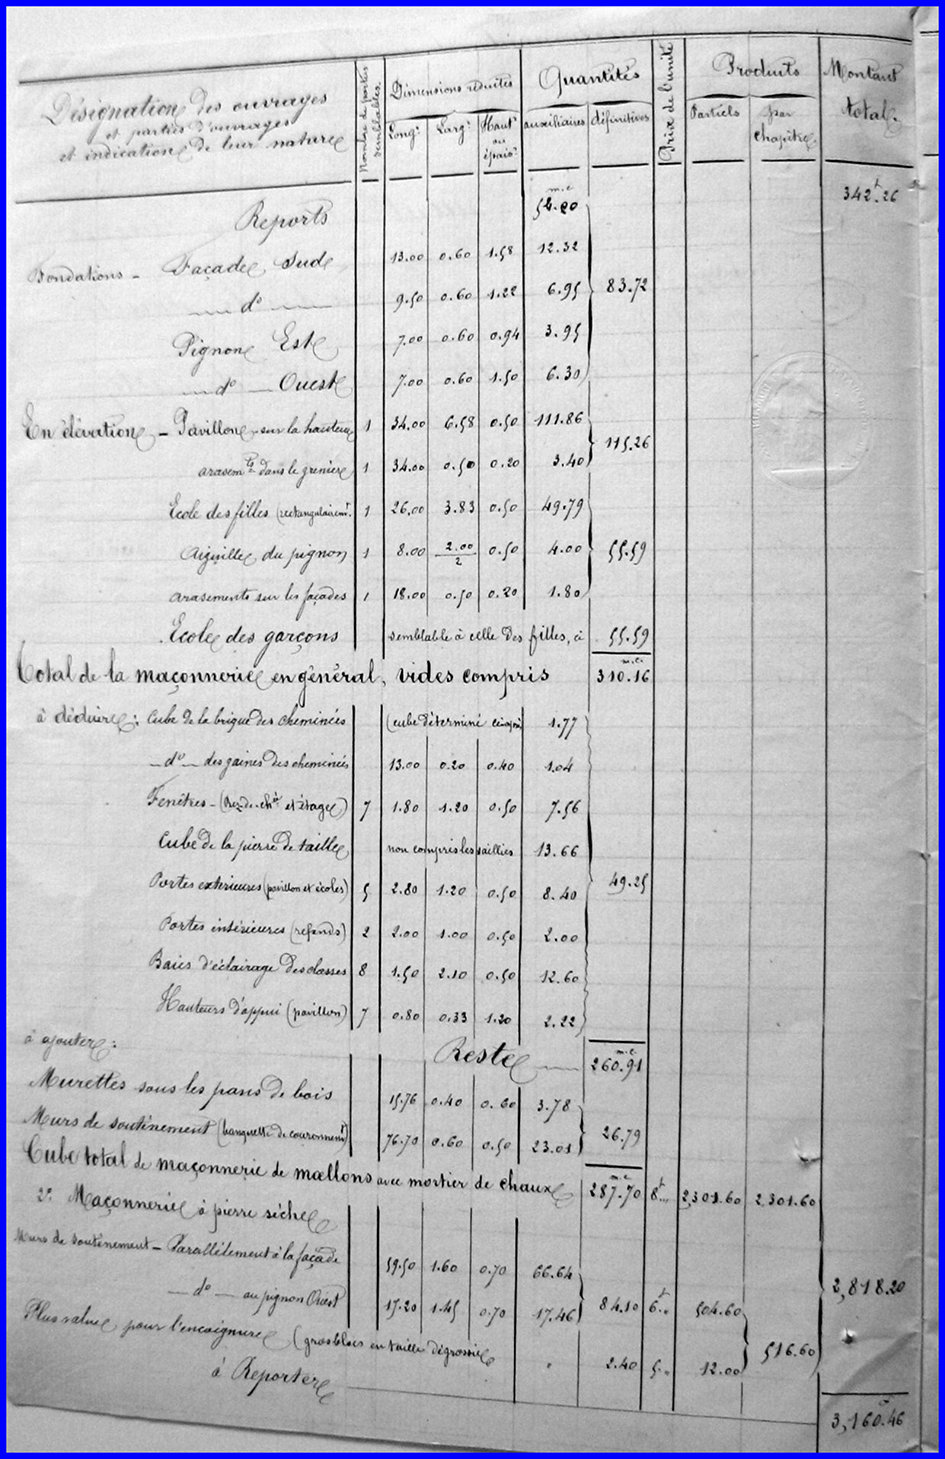 Désignation des ouvrages
et parties d'ouvrages
et indication de leur nature
Nombre de parties semblables.
Dimensions réduites
Longr.
Largr.
Hautr. ou épaisr.
Quantités
auxiliaires
définitives
Prix de l'unité
Produits
Partiels
par chapitre
Montant total.
Reports 342f.26
Fondations - Façade Sud 13.00 0.60 1.58 12.32
- do - 9.50 0.60 1.22 6.95 83.72
Pignon Est 7.00 0.60 0.94 3.95
- do - Ouest 7.00 0.60 1.50 6.30
En élévation - Pavillon - sur la hauteur 1 34.00 6.58 0.50 111.86
115.26
arasemts dans le grenier 1 34.00 0.50 0.20 3.40
Ecole des filles (rectangulairemt. 1 26.00 3.83 0.50 49.79
Aiguille du pignon 1 8.00 2.00/2 0.50 4.00 55.59
arasements sur les façades 1 18.00 0.50 0.20 1.80
Ecole des garçons semblable à celle des filles, ci 55.59
Total de la maçonnerie en général, vides compris m.c. 310.16
à déduire: Cube de la brique des cheminées (cube déterminé 1.77
- do - des gaines des cheminées 13.00 0.20 0.40 1.04
Fenêtres - (Rez-de-chée et étage) 7 1.80 1.20 0.50 7.56
Cube de la pierre de taille non compris les saillies 13.66
49.25
Portes extérieures (pavillon et écoles) 5 2.80 1.20 0.50 8.40
Portes intérieures (refends) 2 2.00 1.00 0.50 2.00
Baies d'éclairage des classes 8 1.50 2.10 0.50 12.60
Hauteurs d'appui (pavillon) 7 0.80 0.33 1.20 2.22
Reste m.c. 260.91
à ajouter:
Murettes sous les pans de bois 15.76 0.40 0.60 3.78
26.79
Murs de soutènement (banquette de couronnemt) 76.70 0.60 0.50 23.01
Cube total de maçonnerie de moellons avec mortier de chaux m.c. 287.70 8f.. 2,301.60 2,301.60
2o. Maçonnerie à pierre sèche
Murs de soutènement - Parallèlement à la façade 59.50 1.60 0.70 66.64
2,818.20
- do - au pignon Ouest 17.20 1.45 0.70 17.46 84.10 6f.. 504.60
516.60
Plus value pour l'encoignure (gros blocs en taille dégrossie " 2.40 5.. 12.00
à Reporter 3,160.46